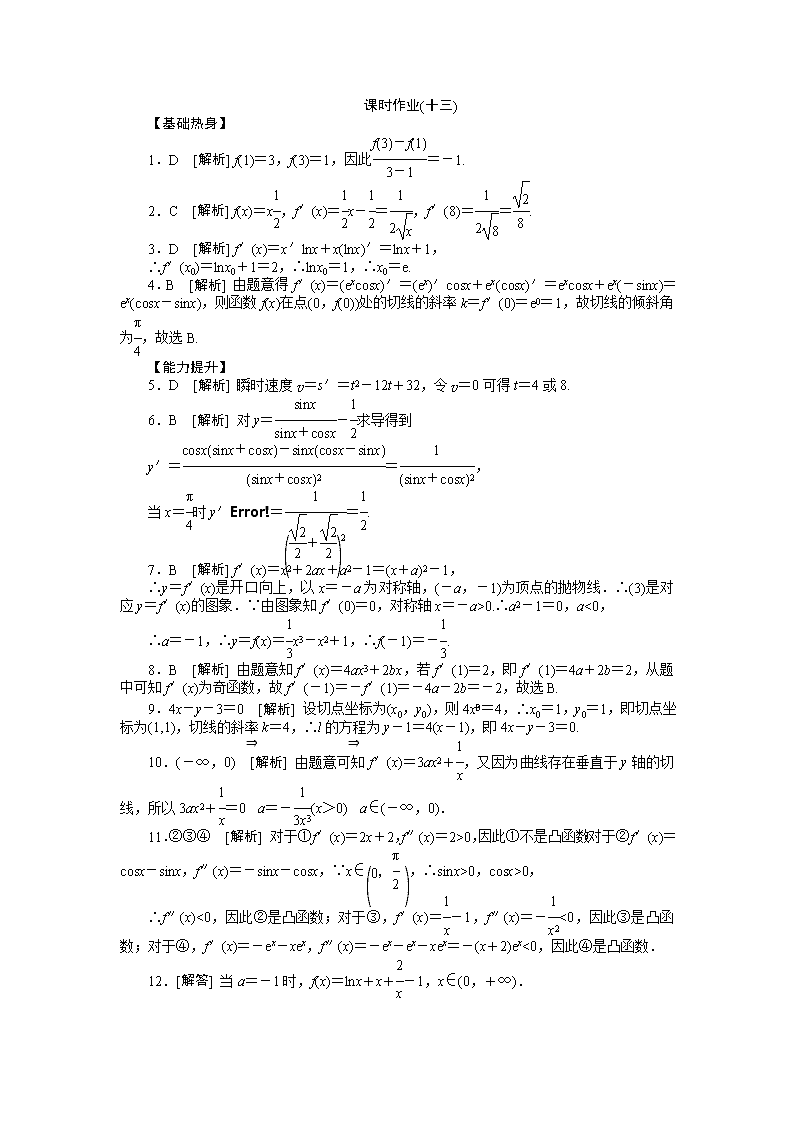 课时作业(十三)
【基础热身】
1．D　[解析] f(1)＝3，f(3)＝1，因此\frac{f(3)－f(1)}{3－1}＝－1.
2．C　[解析] f(x)＝x\frac{1}{2}，f′(x)＝\frac{1}{2}x－\frac{1}{2}＝\frac{1}{2\sqrt{x}}，f′(8)＝\frac{1}{2\sqrt{8}}＝\frac{\sqrt{2}}{8}.
3．D　[解析] f′(x)＝x′lnx＋x(lnx)′＝lnx＋1，
∴f′(x₀)＝lnx₀＋1＝2，∴lnx₀＝1，∴x₀＝e.
4.B　[解析] 由题意得 f′(x)＝(eˣcosx)′＝(eˣ)′cosx＋eˣ(cosx)′＝eˣcosx＋eˣ(－sinx)＝
eˣ(cosx－sinx)，则函数 f(x)在点(0，f(0))处的切线的斜率 k＝f′(0)＝e⁰＝1，故切线的倾斜角
为\frac{π}{4}，故选 B.
【能力提升】
5．D　[解析] 瞬时速度 v＝s′＝t²－12t＋32，令 v＝0 可得 t＝4 或 8.
6．B　[解析] 对 y＝\frac{sinx}{sinx＋cosx}－\frac{1}{2}求导得到
y′＝\frac{cosx(sinx＋cosx)－sinx(cosx－sinx)}{(sinx＋cosx)²}＝\frac{1}{(sinx＋cosx)²}，
当 x＝\frac{π}{4}时 y′Error!＝\frac{1}{(\frac{\sqrt{2}}{2}＋\frac{\sqrt{2}}{2})²}＝\frac{1}{2}.
7．B　[解析] f′(x)＝x²＋2ax＋a²－1＝(x＋a)²－1，
∴y＝f′(x)是开口向上，以 x＝－a 为对称轴，(－a，－1)为顶点的抛物线．∴(3)是对
应 y＝f′(x)的图象．∵由图象知 f′(0)＝0，对称轴 x＝－a>0.∴a²－1＝0，a<0，
∴a＝－1，∴y＝f(x)＝\frac{1}{3}x³－x²＋1，∴f(－1)＝－\frac{1}{3}.
8．B　[解析] 由题意知 f′(x)＝4ax³＋2bx，若 f′(1)＝2，即 f′(1)＝4a＋2b＝2，从题
中可知 f′(x)为奇函数，故 f′(－1)＝－f′(1)＝－4a－2b＝－2，故选B.
9．4x－y－3＝0　[解析] 设切点坐标为(x₀，y₀)，则 4x₀³＝4，∴x₀＝1，y₀＝1，即切点坐
标为(1,1)，切线的斜率 k＝4，∴l 的方程为 y－1＝4(x－1)，即 4x－y－3＝0.
⇒　⇒
10．(－∞，0)　[解析] 由题意可知 f′(x)＝3ax²＋\frac{1}{x}，又因为曲线存在垂直于 y 轴的切
线，所以 3ax²＋\frac{1}{x}＝0　a＝－\frac{1}{3x³}(x＞0)　a∈(－∞，0)．
11.②③④　[解析] 对于①f′(x)＝2x＋2,f″(x)＝2>0,因此①不是凸函数对于②f′(x)＝
cosx－sinx，f″(x)＝－sinx－cosx，∵x∈(0，\frac{π}{2})，∴sinx>0，cosx>0，
∴f″(x)<0，因此②是凸函数；对于③，f′(x)＝\frac{1}{x}－1，f″(x)＝－\frac{1}{x²}<0，因此③是凸函
数；对于④，f′(x)＝－eˣ－xeˣ，f″(x)＝－eˣ－eˣ－xeˣ＝－(x＋2)eˣ<0，因此④是凸函数．
12．[解答] 当 a＝－1 时，f(x)＝lnx＋x＋\frac{2}{x}－1，x∈(0，＋∞)．